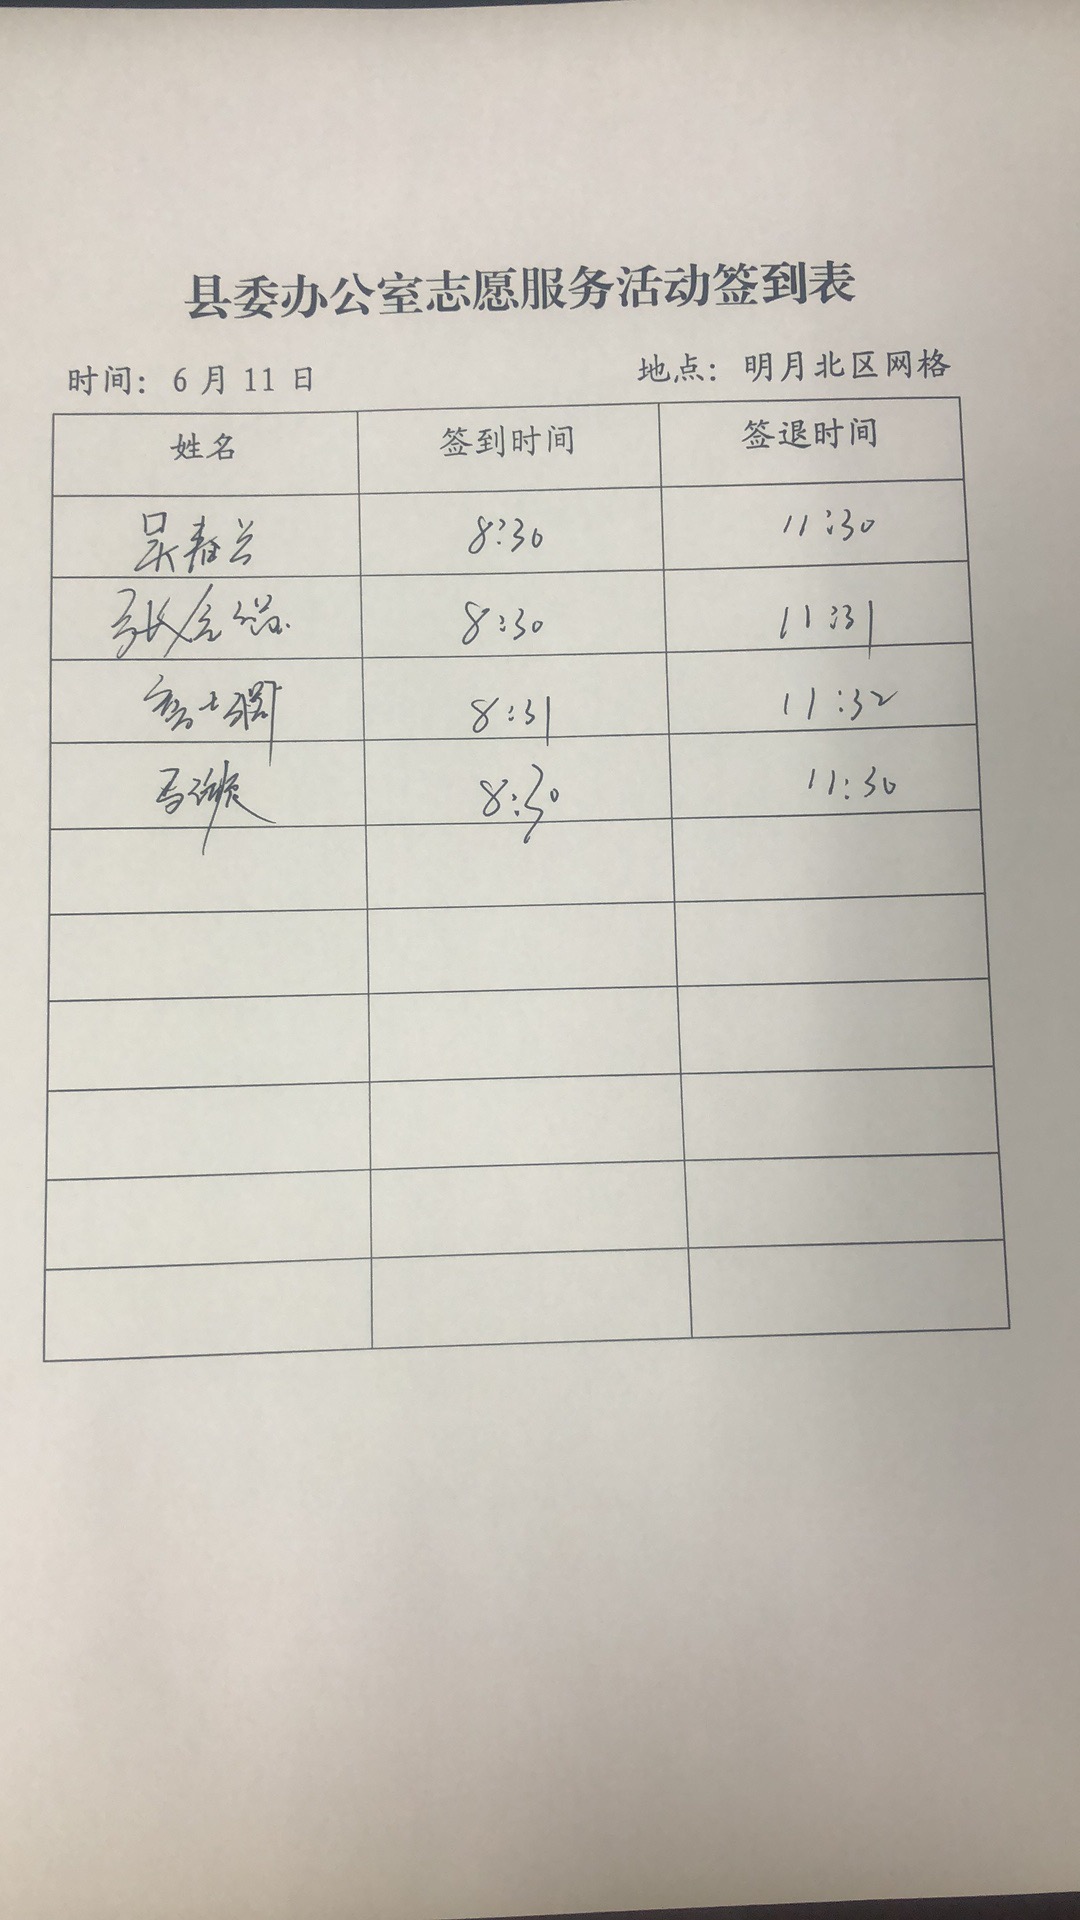 县委办公室志愿服务活动签到表
时间：6 月 11 日 地点：明月北区网格
姓名 签到时间 签退时间
吴春兰 8:30 11:30
8:30 11:31
8:31 11:32
8:30 11:30